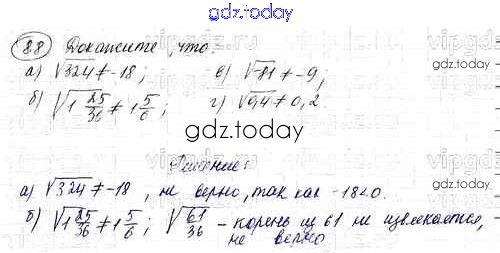 gdz.today
88 Докажите, что:
а) √324 ≠ -18; в) √-81 ≠ -9;
б) √1 25/36 ≠ 1 5/6; г) √0,4 ≠ 0,2.
gdz.today
Решение:
а) √324 ≠ -18, не верно, так как -18<0.
б) √1 25/36 ≠ 1 5/6; √61/36 - корень из 61 не извлекается,
не верно
gdz.today